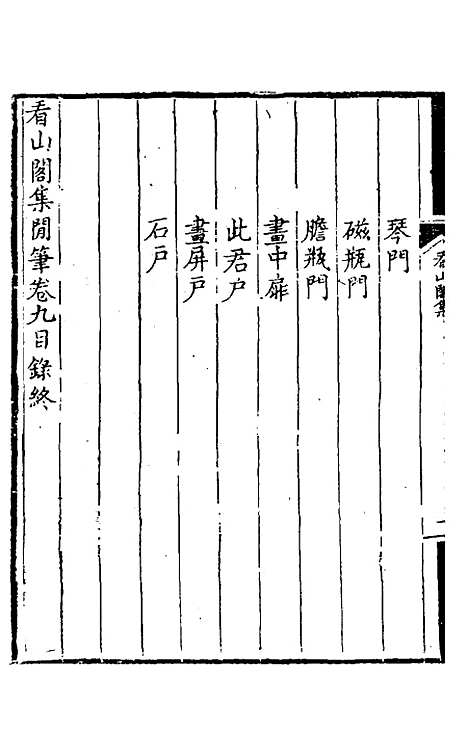 看山閣集
琴門
磁瓶門
膽瓶門
畫中扉
此君戶
畫屏戶
石戶
看山閣集閒筆卷九目錄終